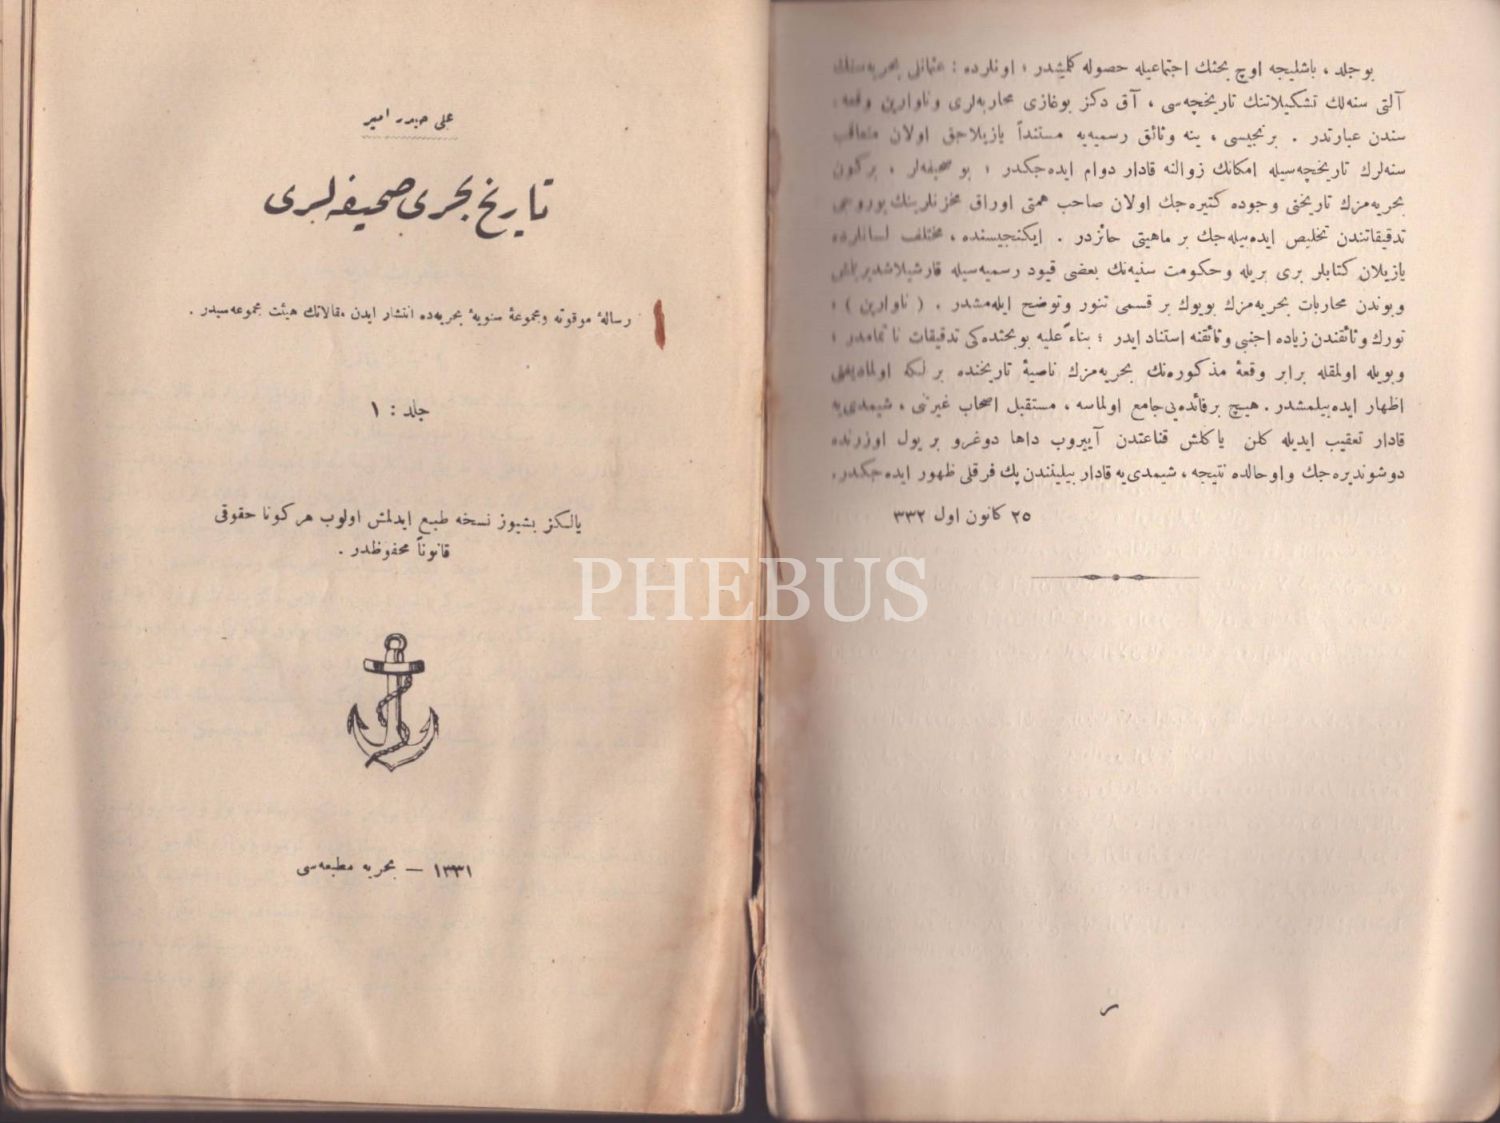 علی حیدر امیر
تاریخ بحری صحیفه‌لری
رسالهٔ موقوته و مجموعهٔ سنویهٔ بحریه‌ده انتشار ایدن مقالاتك هیئت مجموعه‌سیدر .
جلد : ١
یالكز بشیوز نسخه طبع ایدلمش اولوب هر كونا حقوقی
قانوناً محفوظدر .
١٣٣١ — بحریه مطبعه‌سی
بو جلد ، باشلیجه اوچ بحثك اجتماعیله حصوله كلمیشدر ؛ اونلرده : عثمانلی بحریه‌سنك
آلتی سنه‌لك تشكیلاتنك تاریخچه‌سی ، آق دكز بوغازی محاربه‌لری و ناوارین وقعه‌
سندن عبارتدر . برنجیسی ، ینه وثائق رسمیه‌یه مستنداً یازیلاجق اولان متعاقب
سنه‌لرك تاریخچه‌سیله امكانك زوالنه قادار دوام ایده‌جكدر ؛ بو صحیفه‌لر ، بركون
بحریه‌مزك تاریخنی وجوده كتیره‌جك اولان صاحب همتی اوراق مخزنلرینك یوروجی
تدقیقاتندن تخلیص ایده‌بیله‌جك بر ماهیتی حائزدر . ایكنجیسنده ، مختلف لسانلرده
یازیلان كتابلر بری بریله و حكومت سنیه‌نك بعضی قیود رسمیه‌سیله قارشیلاشدیریلمش
و بوندن محاربات بحریه‌مزك بویوك بر قسمی تنور و توضح ایله‌مشدر . ( ناوارین ) ،
تورك وثائقندن زیاده اجنبی وثائقنه استناد ایدر ؛ بناءً علیه بو بحثده‌كی تدقیقات ناتمامدر ؛
و بویله اولمقله برابر وقعهٔ مذكوره‌نك بحریه‌مزك ناصیهٔ تاریخنده بر لكه اولمادیغنی
اظهار ایده‌بیلمشدر . هیچ بر فائده‌یی جامع اولماسه ، مستقبل اصحاب غیرتی ، شیمدی‌یه
قادار تعقیب ایدیله كلن یاكلش قناعتدن آییروب داها دوغرو بر یول اوزرنده
دوشوندیره‌جك و اوحالده نتیجه ، شیمدی‌یه قادار بیلینندن پك فرقلی ظهور ایده‌جكدر.
٢٥ كانون اول ٣٣٢
PHEBUS